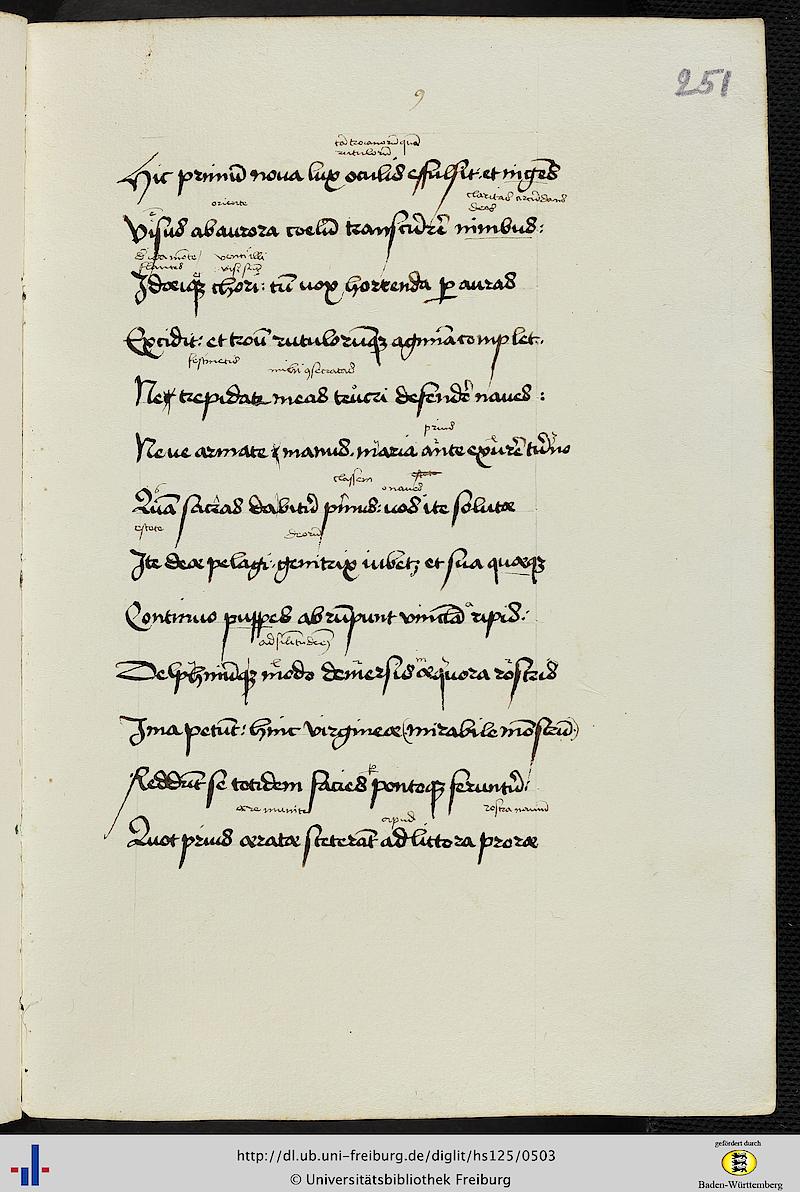 9
251
tā troianorū quā
rutulorū
Hic primū nova lux oculis effulsit: et ingēs
oriente
claritas circūdans
deas
Visus ab aurora coelū transcurrē nimbus:
venti illi
Idaeiqꝫ chori: tū vox horrenda ꝑ auras
Excidit: et troū rutulorūqꝫ agmīa complet.
Ne trepidate meas teucri defendē naves:
prius
Neve armate manus. maria ante exurē turno
classem
o naves
Quā sacras dabitur pinus: vos ite solutae
estote
deorū
Ite deae pelagi: genitrix iubetꝫ et sua quaeqꝫ
Continuo puppes abrūpunt vincla ripis:
ad silitudinē
Delphinūqꝫ modo demersis aequora rostris
Ima petūt: hinc virgineae (mirabile mōstrū)
Reddūt se totidem facies pontoqꝫ feruntur:
aere munitae
apud
rostra navium
Quot prius aeratae steterāt ad littora prorae
http://dl.ub.uni-freiburg.de/diglit/hs125/0503
© Universitätsbibliothek Freiburg
gefördert durch
Baden-Württemberg